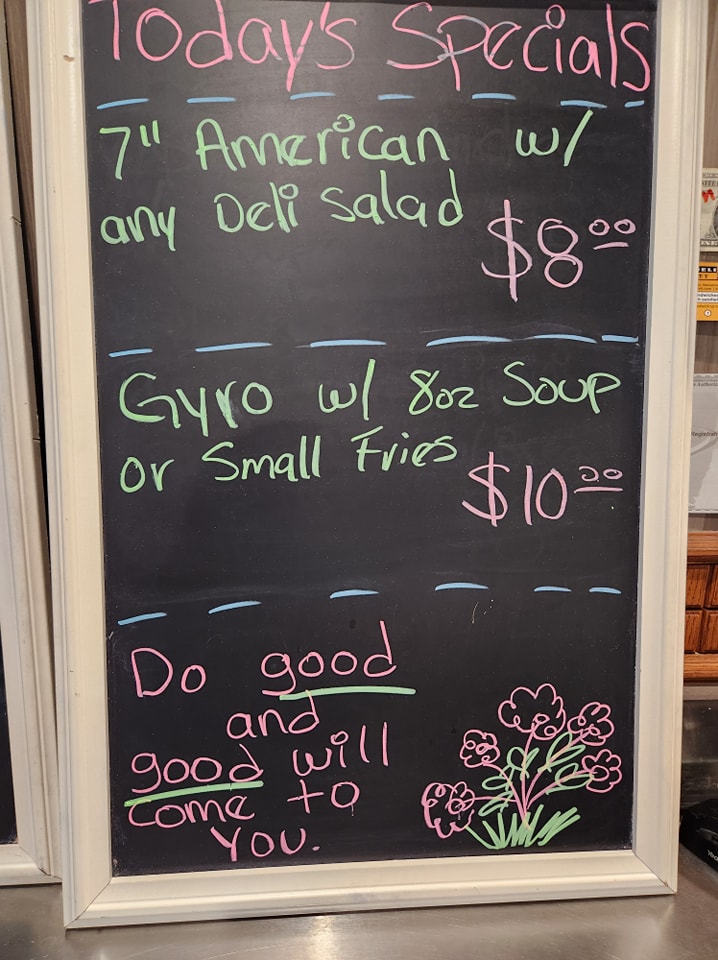 Today's Specials
7" American w/
any Deli Salad
$8.00
Gyro w/ 8oz Soup
or Small Fries
$10.00
Do good
and
good will
come to
you.